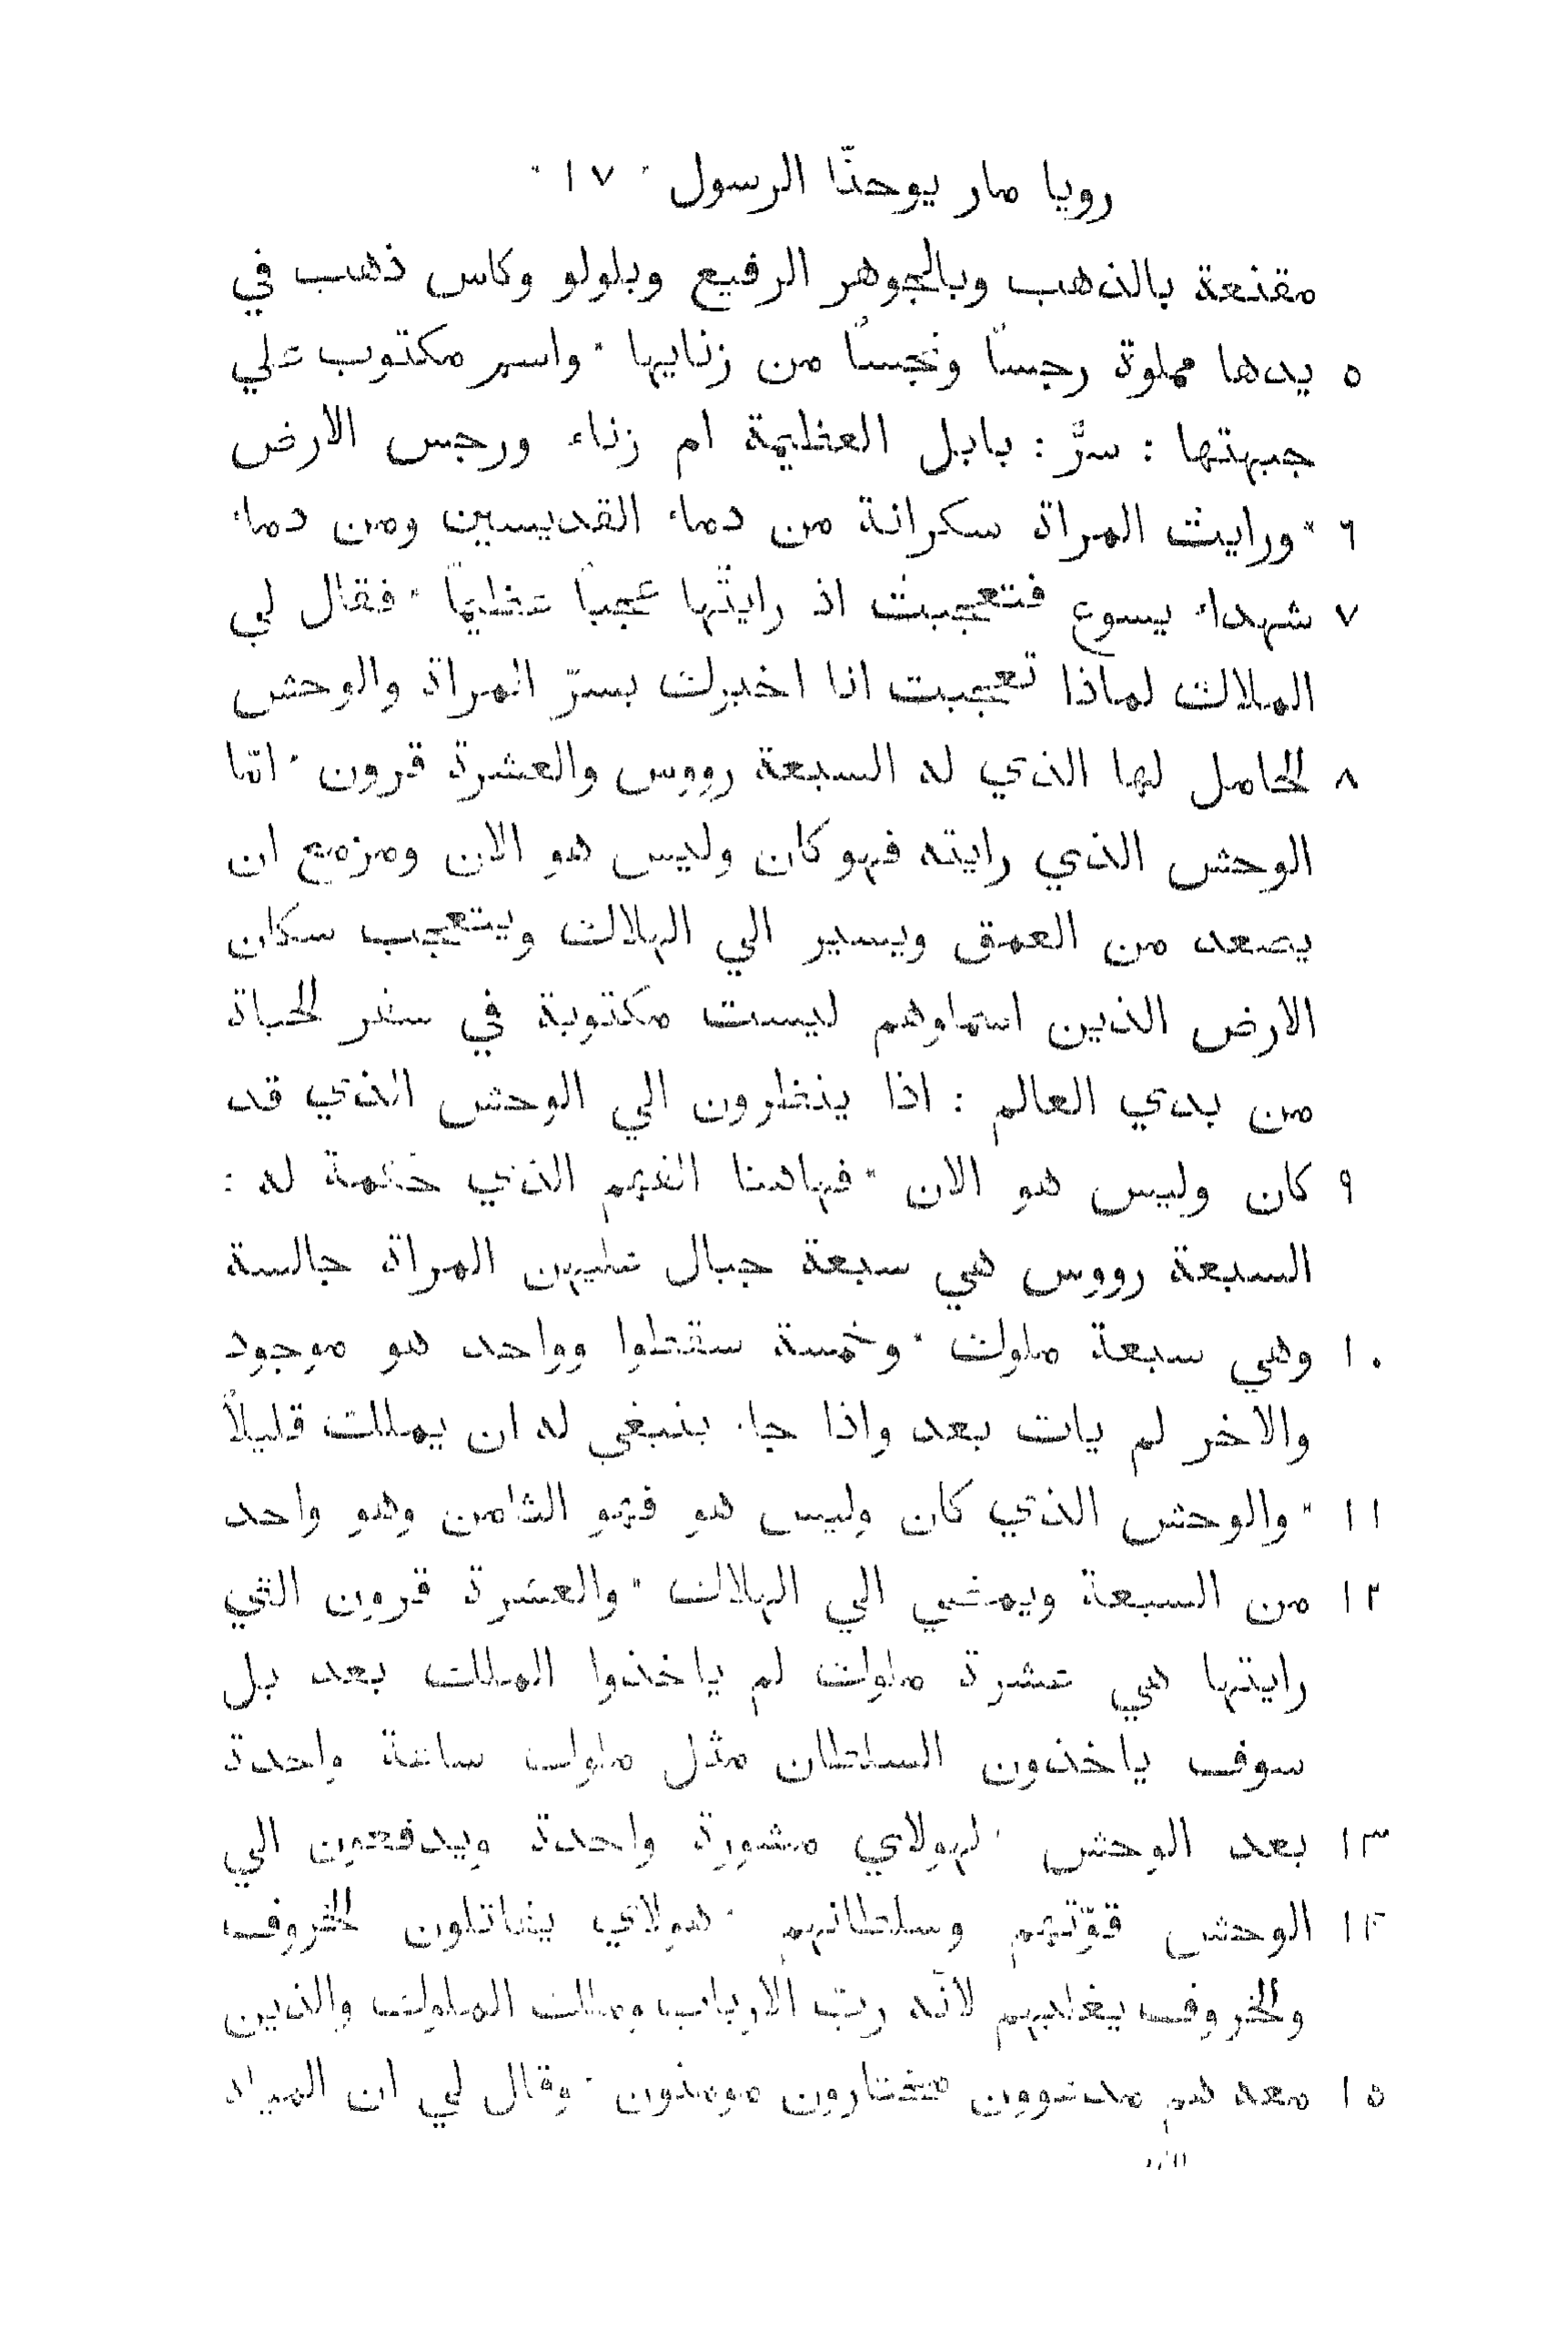 رويا مار يوحنّا الرسول ٠ ١٧ ٠
مقنعة بالذهب وبالجوهر الرفيع وبلولو وكاس ذهب في
٥ يدها مملوة رجسًا ونجسًا من زنايها * واسم مكتوب علي
جبهتها : سرّ : بابل العظيمة ام زناء ورجس الارض
٦ * ورايت المراة سكرانة من دماء القديسين ومن دماء
٧ شهداء يسوع فتعجبت اذ رايتها عجبًا عظيمًا * فقال لي
الملاك لماذا تعجبت انا اخبرك بسرّ المراة والوحش
٨ الحامل لها الذي له السبعة رووس والعشرة قرون * امّا
الوحش الذي رايته فهو كان وليس هو الان ومزمع ان
يصعد من العمق ويسير الي الهلاك ويتعجب سكان
الارض الذين اسماوهم ليست مكتوبة في سفر الحياة
من بدي العالم : اذا ينظرون الي الوحش الذي قد
٩ كان وليس هو الان * فهاهنا الفهم الذي حكمة له :
السبعة رووس هي سبعة جبال عليهن المراة جالسة
١٠ وهي سبعة ملوك * وخمسة سقطوا وواحد هو موجود
والاخر لم يات بعد واذا جاء ينبغي له ان يملك قليلاً
١١ * والوحش الذي كان وليس هو فهو الثامن وهو واحد
١٢ من السبعة ويمضي الي الهلاك * والعشرة قرون التي
رايتها هي عشرة ملوك لم ياخذوا الملك بعد بل
سوف ياخذون السلطان مثل ملوك ساعة واحدة
١٣ بعد الوحش * لهولاي مشورة واحدة ويدفعون الي
١٤ الوحش قوّتهم وسلطانهم * هولاي يقاتلون الخروف
والخروف يغلبهم لانّه ربّ الارباب وملك الملوك والذين
١٥ معه هم مدعوون مختارون مومنون * وقال لي ان المياه